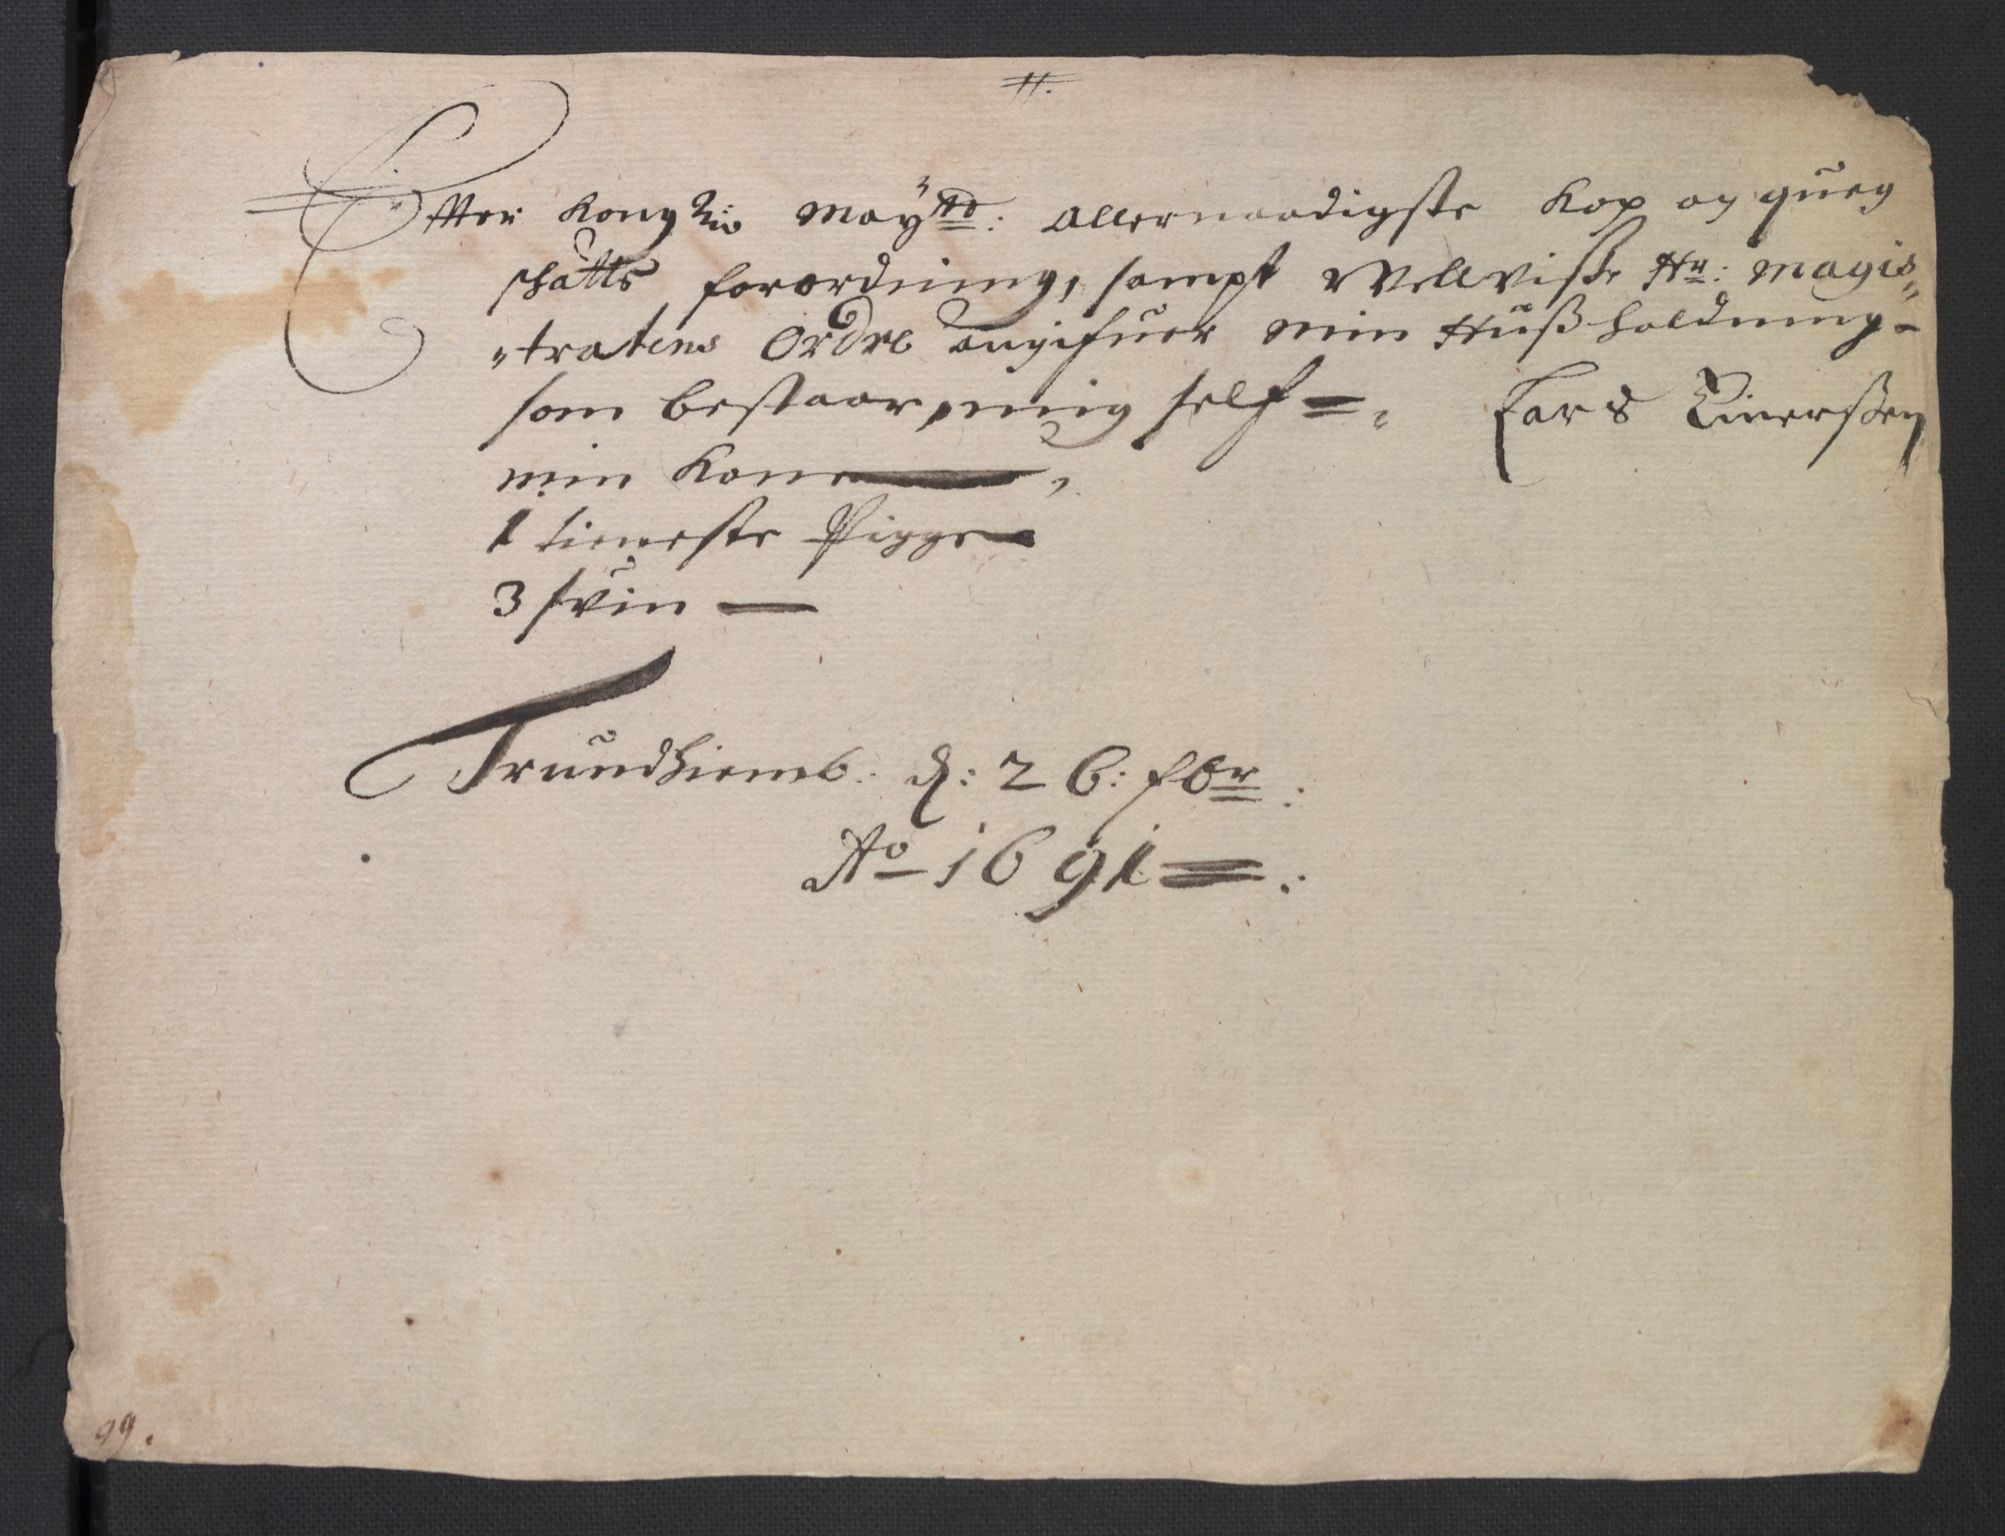 H.
Effter Kong: Mayttz: allernaadigste Kop og queg
schatts forordning, sampt Welluisse Hr: Magis„
„tratens Ordre angifuer min Hußholdning
som bestaar, mig self =, Lars Einerßen
min Kone —,
1 tieneste Pigge —
3 svin —
Trundhiemb. d: 26: fbr:
Ao 1691 =.:
99.